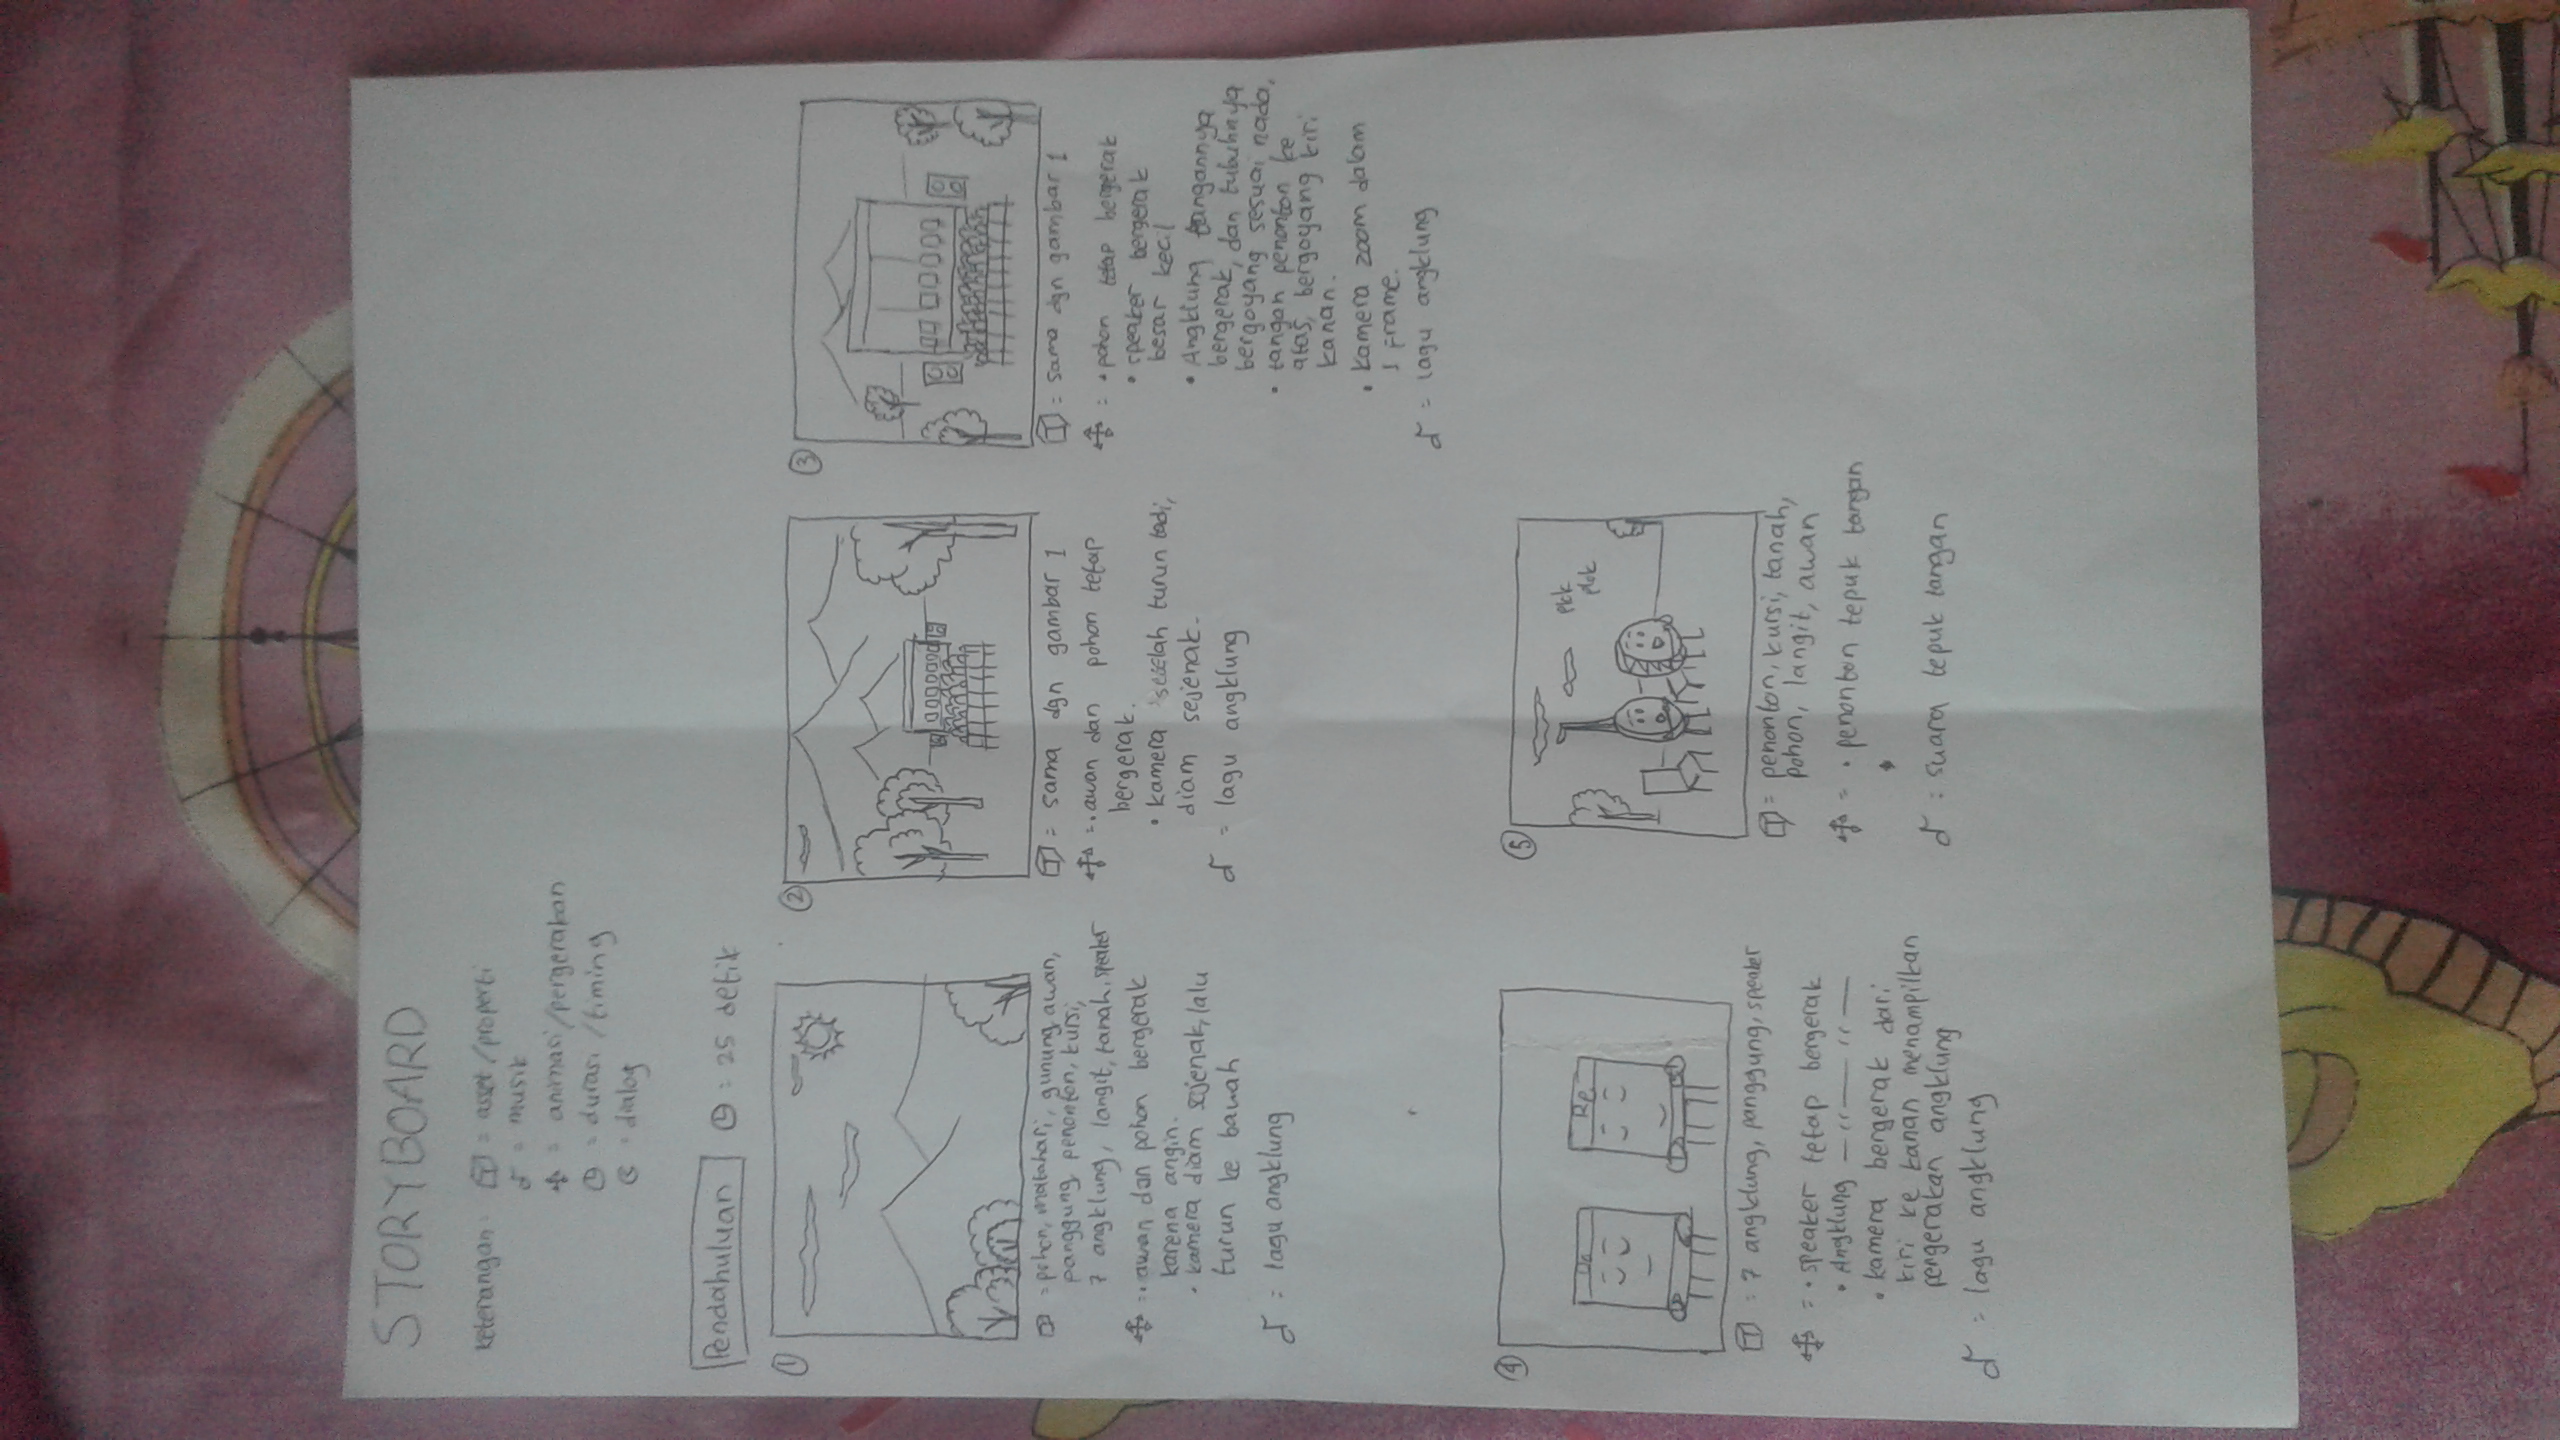 STORYBOARD
keterangan: = asset/properti
= musik
= animasi/pergerakan
= durasi/timing
= dialog
Pendahuluan : 25 detik
1
= pohon, matahari, gunung, awan,
panggung, penonton, kursi,
7 angklung, langit, tanah, speaker
= • awan dan pohon bergerak
karena angin.
• kamera diam sejenak, lalu
turun ke bawah
= lagu angklung
2
= sama dgn gambar 1
= • awan dan pohon tetap
bergerak.
• kamera setelah turun tadi,
diam sejenak.
= lagu angklung
3
= sama dgn gambar 1
= • pohon tetap bergerak
• speaker bergerak
besar kecil
• Angklung tangannya
bergerak, dan tubuhnya
bergoyang sesuai nada,
• tangan penonton ke
atas, bergoyang kiri
kanan.
• kamera zoom dalam
1 frame.
= lagu angklung
4
Do Re
= 7 angklung, panggung, speaker
= • speaker tetap bergerak
• Angklung — " — " —
• kamera bergerak dari
kiri ke kanan menampilkan
pergerakan angklung
= lagu angklung
5
plok
plok
= penonton, kursi, tanah,
pohon, langit, awan
= • penonton tepuk tangan
•
: suara tepuk tangan